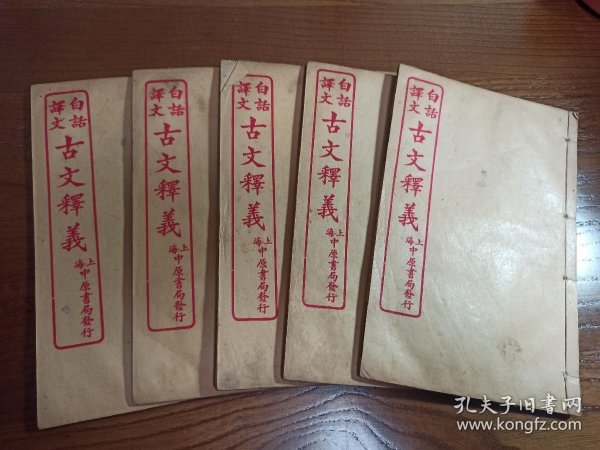 白話
譯文
古文釋義
上海
中原書局發行
白話
譯文
古文釋義
上海
中原書局發行
白話
譯文
古文釋義
上海
中原書局發行
白話
譯文
古文釋義
上海
中原書局發行
白話
譯文
古文釋義
上海
中原書局發行
孔夫子旧書网
www.kongfz.com